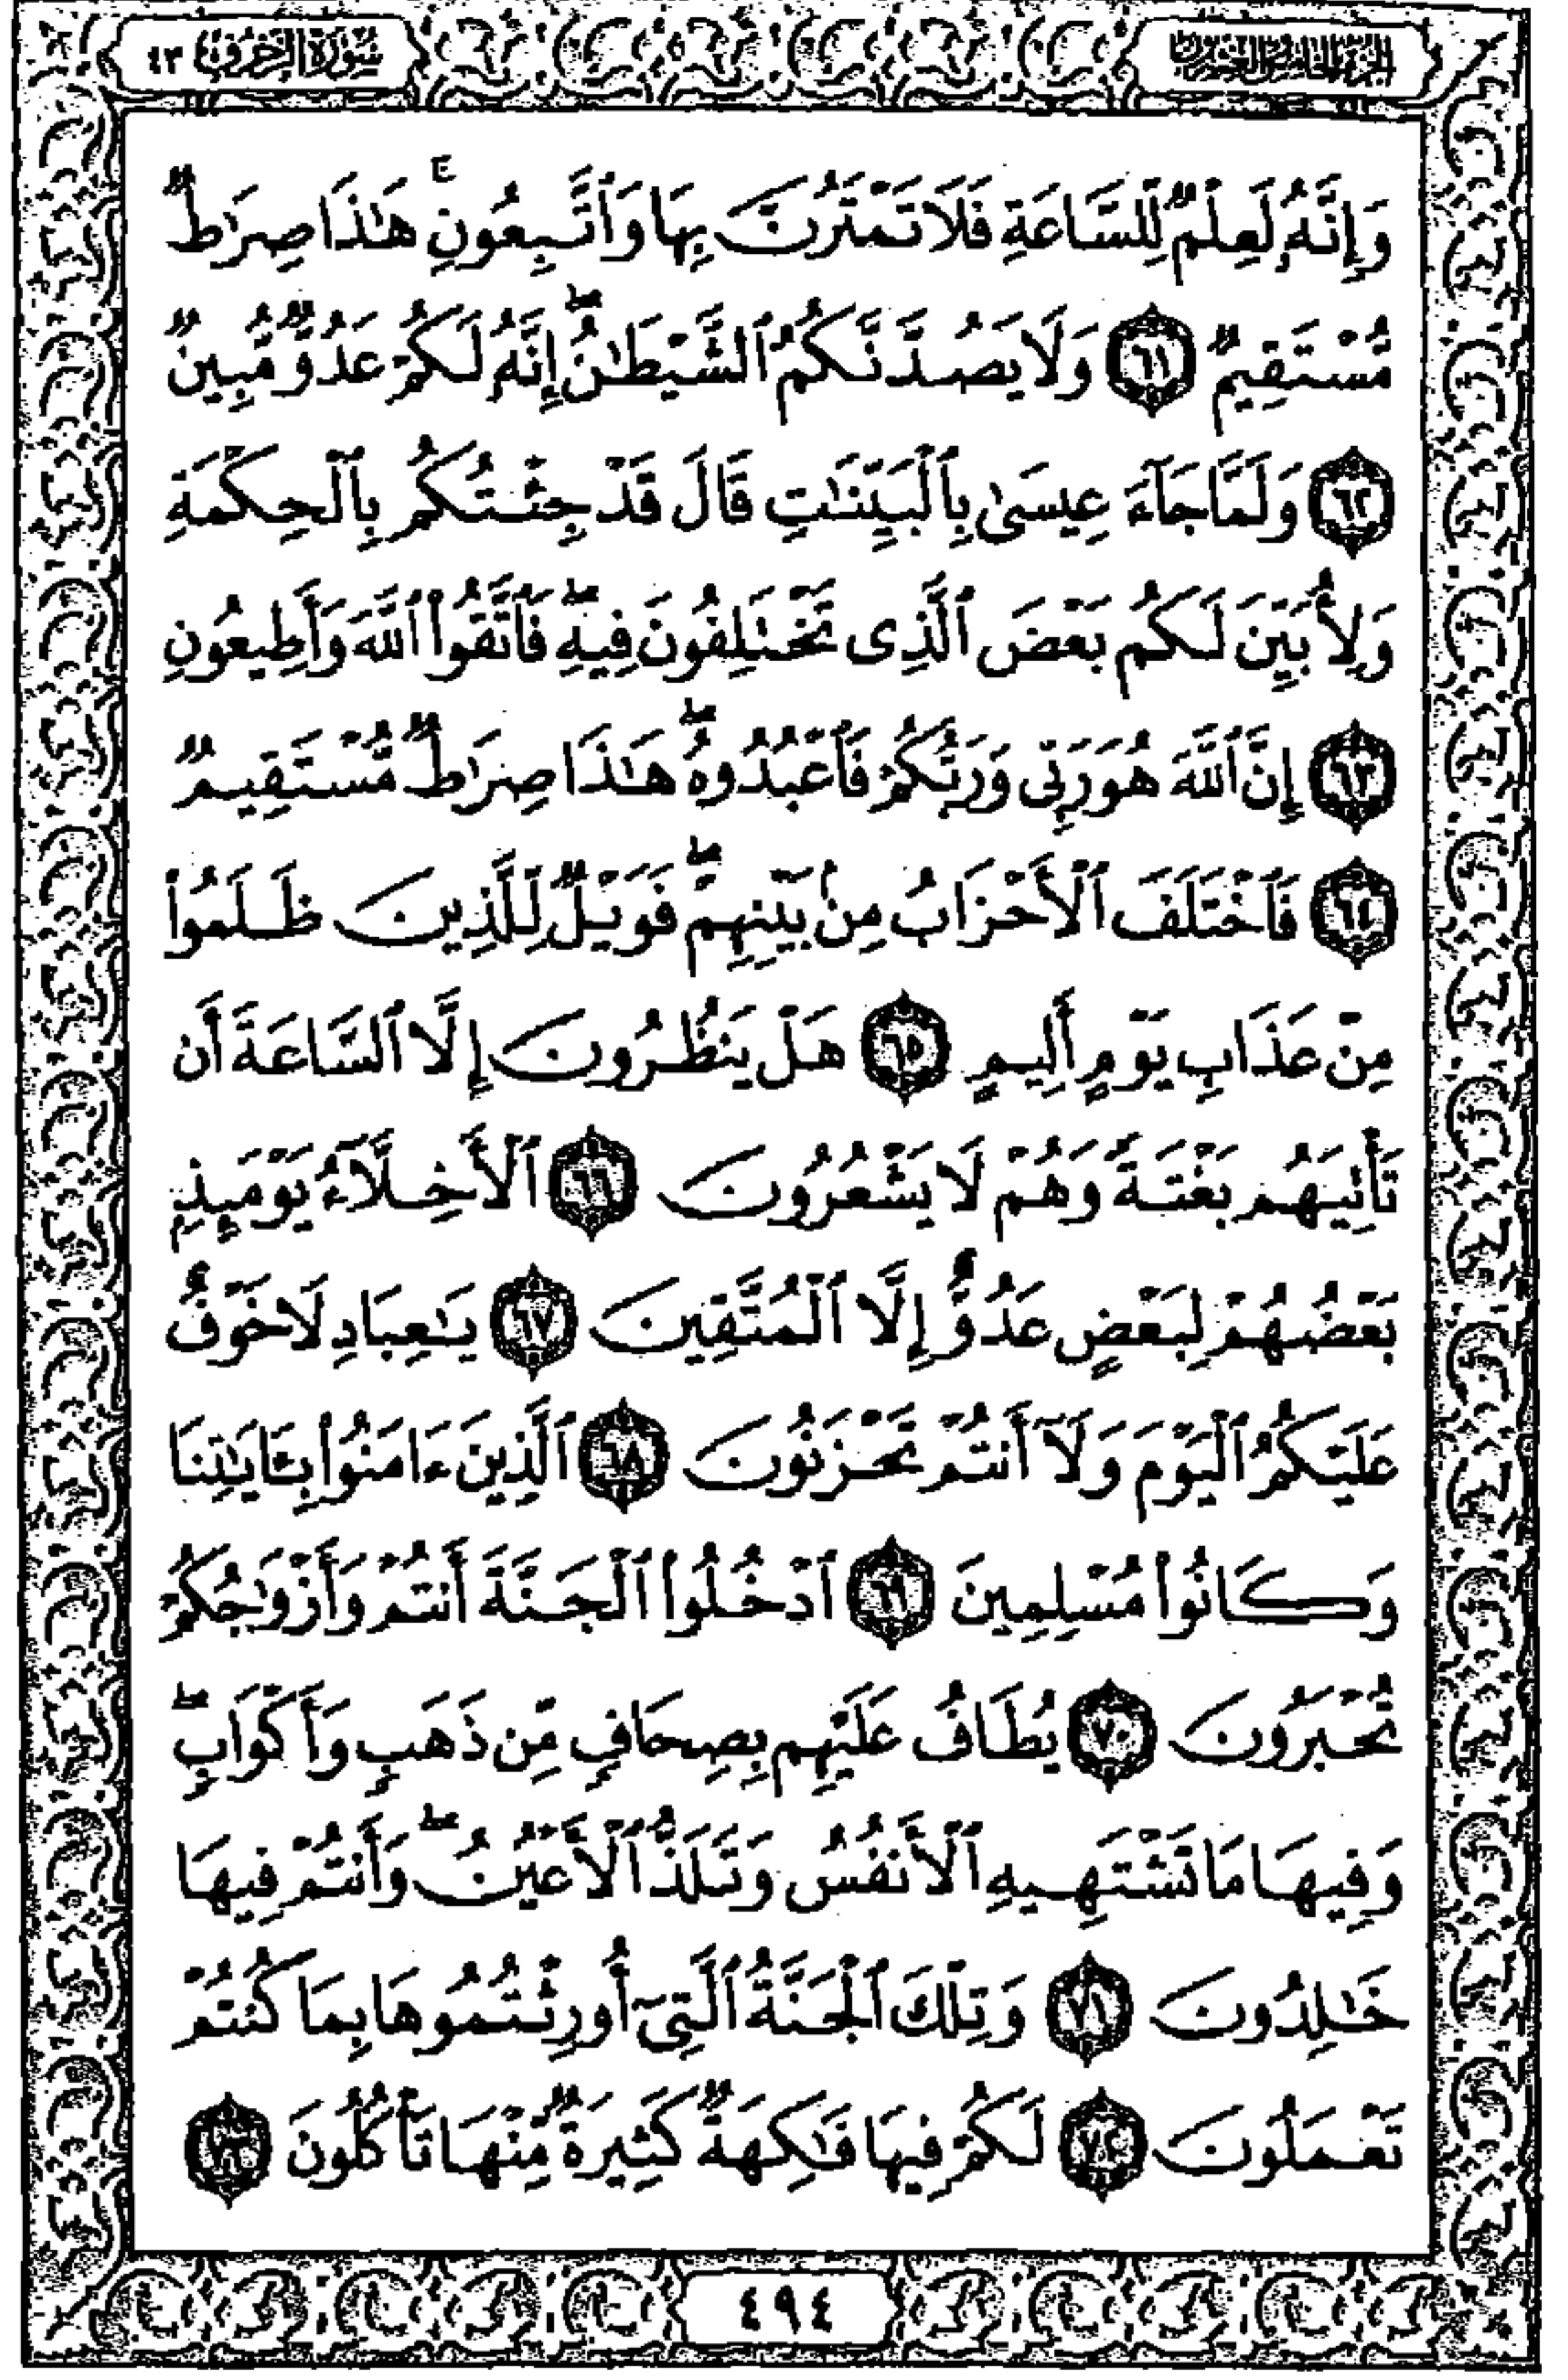 الجزء الخامس والعشرون
سورة الزخرف ٤٣
وَإِنَّهُۥ لَعِلْمٌ لِّلسَّاعَةِ فَلَا تَمْتَرُنَّ بِهَا وَٱتَّبِعُونِ ۚ هَـٰذَا صِرَٰطٌ
مُّسْتَقِيمٌ ٦١ وَلَا يَصُدَّنَّكُمُ ٱلشَّيْطَـٰنُ ۖ إِنَّهُۥ لَكُمْ عَدُوٌّ مُّبِينٌ
٦٢ وَلَمَّا جَآءَ عِيسَىٰ بِٱلْبَيِّنَـٰتِ قَالَ قَدْ جِئْتُكُم بِٱلْحِكْمَةِ
وَلِأُبَيِّنَ لَكُم بَعْضَ ٱلَّذِى تَخْتَلِفُونَ فِيهِ ۖ فَٱتَّقُوا۟ ٱللَّهَ وَأَطِيعُونِ
٦٣ إِنَّ ٱللَّهَ هُوَ رَبِّى وَرَبُّكُمْ فَٱعْبُدُوهُ ۚ هَـٰذَا صِرَٰطٌ مُّسْتَقِيمٌ
٦٤ فَٱخْتَلَفَ ٱلْأَحْزَابُ مِنۢ بَيْنِهِمْ ۖ فَوَيْلٌ لِّلَّذِينَ ظَلَمُوا۟
مِنْ عَذَابِ يَوْمٍ أَلِيمٍ ٦٥ هَلْ يَنظُرُونَ إِلَّا ٱلسَّاعَةَ أَن
تَأْتِيَهُم بَغْتَةً وَهُمْ لَا يَشْعُرُونَ ٦٦ ٱلْأَخِلَّآءُ يَوْمَئِذٍۭ
بَعْضُهُمْ لِبَعْضٍ عَدُوٌّ إِلَّا ٱلْمُتَّقِينَ ٦٧ يَـٰعِبَادِ لَا خَوْفٌ
عَلَيْكُمُ ٱلْيَوْمَ وَلَآ أَنتُمْ تَحْزَنُونَ ٦٨ ٱلَّذِينَ ءَامَنُوا۟ بِـَٔايَـٰتِنَا
وَكَانُوا۟ مُسْلِمِينَ ٦٩ ٱدْخُلُوا۟ ٱلْجَنَّةَ أَنتُمْ وَأَزْوَٰجُكُمْ
تُحْبَرُونَ ٧٠ يُطَافُ عَلَيْهِم بِصِحَافٍ مِّن ذَهَبٍ وَأَكْوَابٍ ۖ
وَفِيهَا مَا تَشْتَهِيهِ ٱلْأَنفُسُ وَتَلَذُّ ٱلْأَعْيُنُ ۖ وَأَنتُمْ فِيهَا
خَـٰلِدُونَ ٧١ وَتِلْكَ ٱلْجَنَّةُ ٱلَّتِىٓ أُورِثْتُمُوهَا بِمَا كُنتُمْ
تَعْمَلُونَ ٧٢ لَكُمْ فِيهَا فَـٰكِهَةٌ كَثِيرَةٌ مِّنْهَا تَأْكُلُونَ ٧٣
٤٩٤